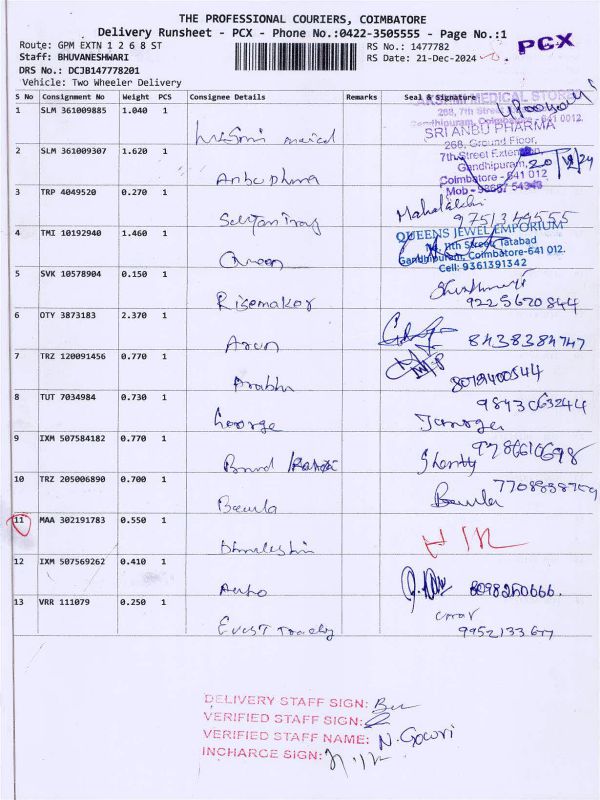 THE PROFESSIONAL COURIERS, COIMBATORE
Delivery Runsheet - PCX - Phone No.:0422-3505555 - Page No.:1
Route: GPM EXTN 1 2 6 8 ST RS No.: 1477782 PCX
Staff: BHUVANESHWARI RS Date: 21-Dec-2024
DRS No.: DCJB147778201
Vehicle: Two Wheeler Delivery
S No Consignment No Weight PCS Consignee Details Remarks Seal & Signature
1 SLM 361009885 1.040 1
MEDICAL STORES
268, 7th Street
Gandhipuram, Coimbatore-641 0012.
SRI ANBU PHARMA
268, Ground Floor,
2 SLM 361009307 1.620 1 7th Street Extension,
Gandhipuram, 20/12/24
Coimbatore - 641 012
Mob - 98657 54343
3 TRP 4049520 0.270 1
Mahalakshmi
9751344555
4 TMI 10192940 1.460 1 QUEENS JEWEL EMPORIUM
11th Street, Tatabad
Queen Gandhipuram, Coimbatore-641 012.
Cell: 9361391342
5 SVK 10578904 0.150 1
Risemaker 9225670844
6 OTY 3873183 2.370 1
Arun 8438384747
7 TRZ 120091456 0.770 1
Prabhu
8 TUT 7034984 0.730 1 9843063244
George
9 IXM 507584182 0.770 1
10 TRZ 205006890 0.700 1
Bawla Bawla
11 MAA 302191783 0.550 1
12 IXM 507569262 0.410 1
Auto 8098250666.
13 VRR 111079 0.250 1
DELIVERY STAFF SIGN:
VERIFIED STAFF SIGN:
VERIFIED STAFF NAME: N. Gowri
INCHARGE SIGN: